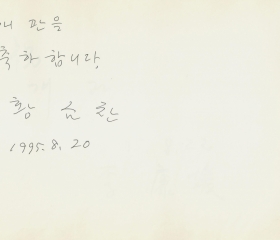 판을
축하합니다.
황 금 찬
1995. 8. 20